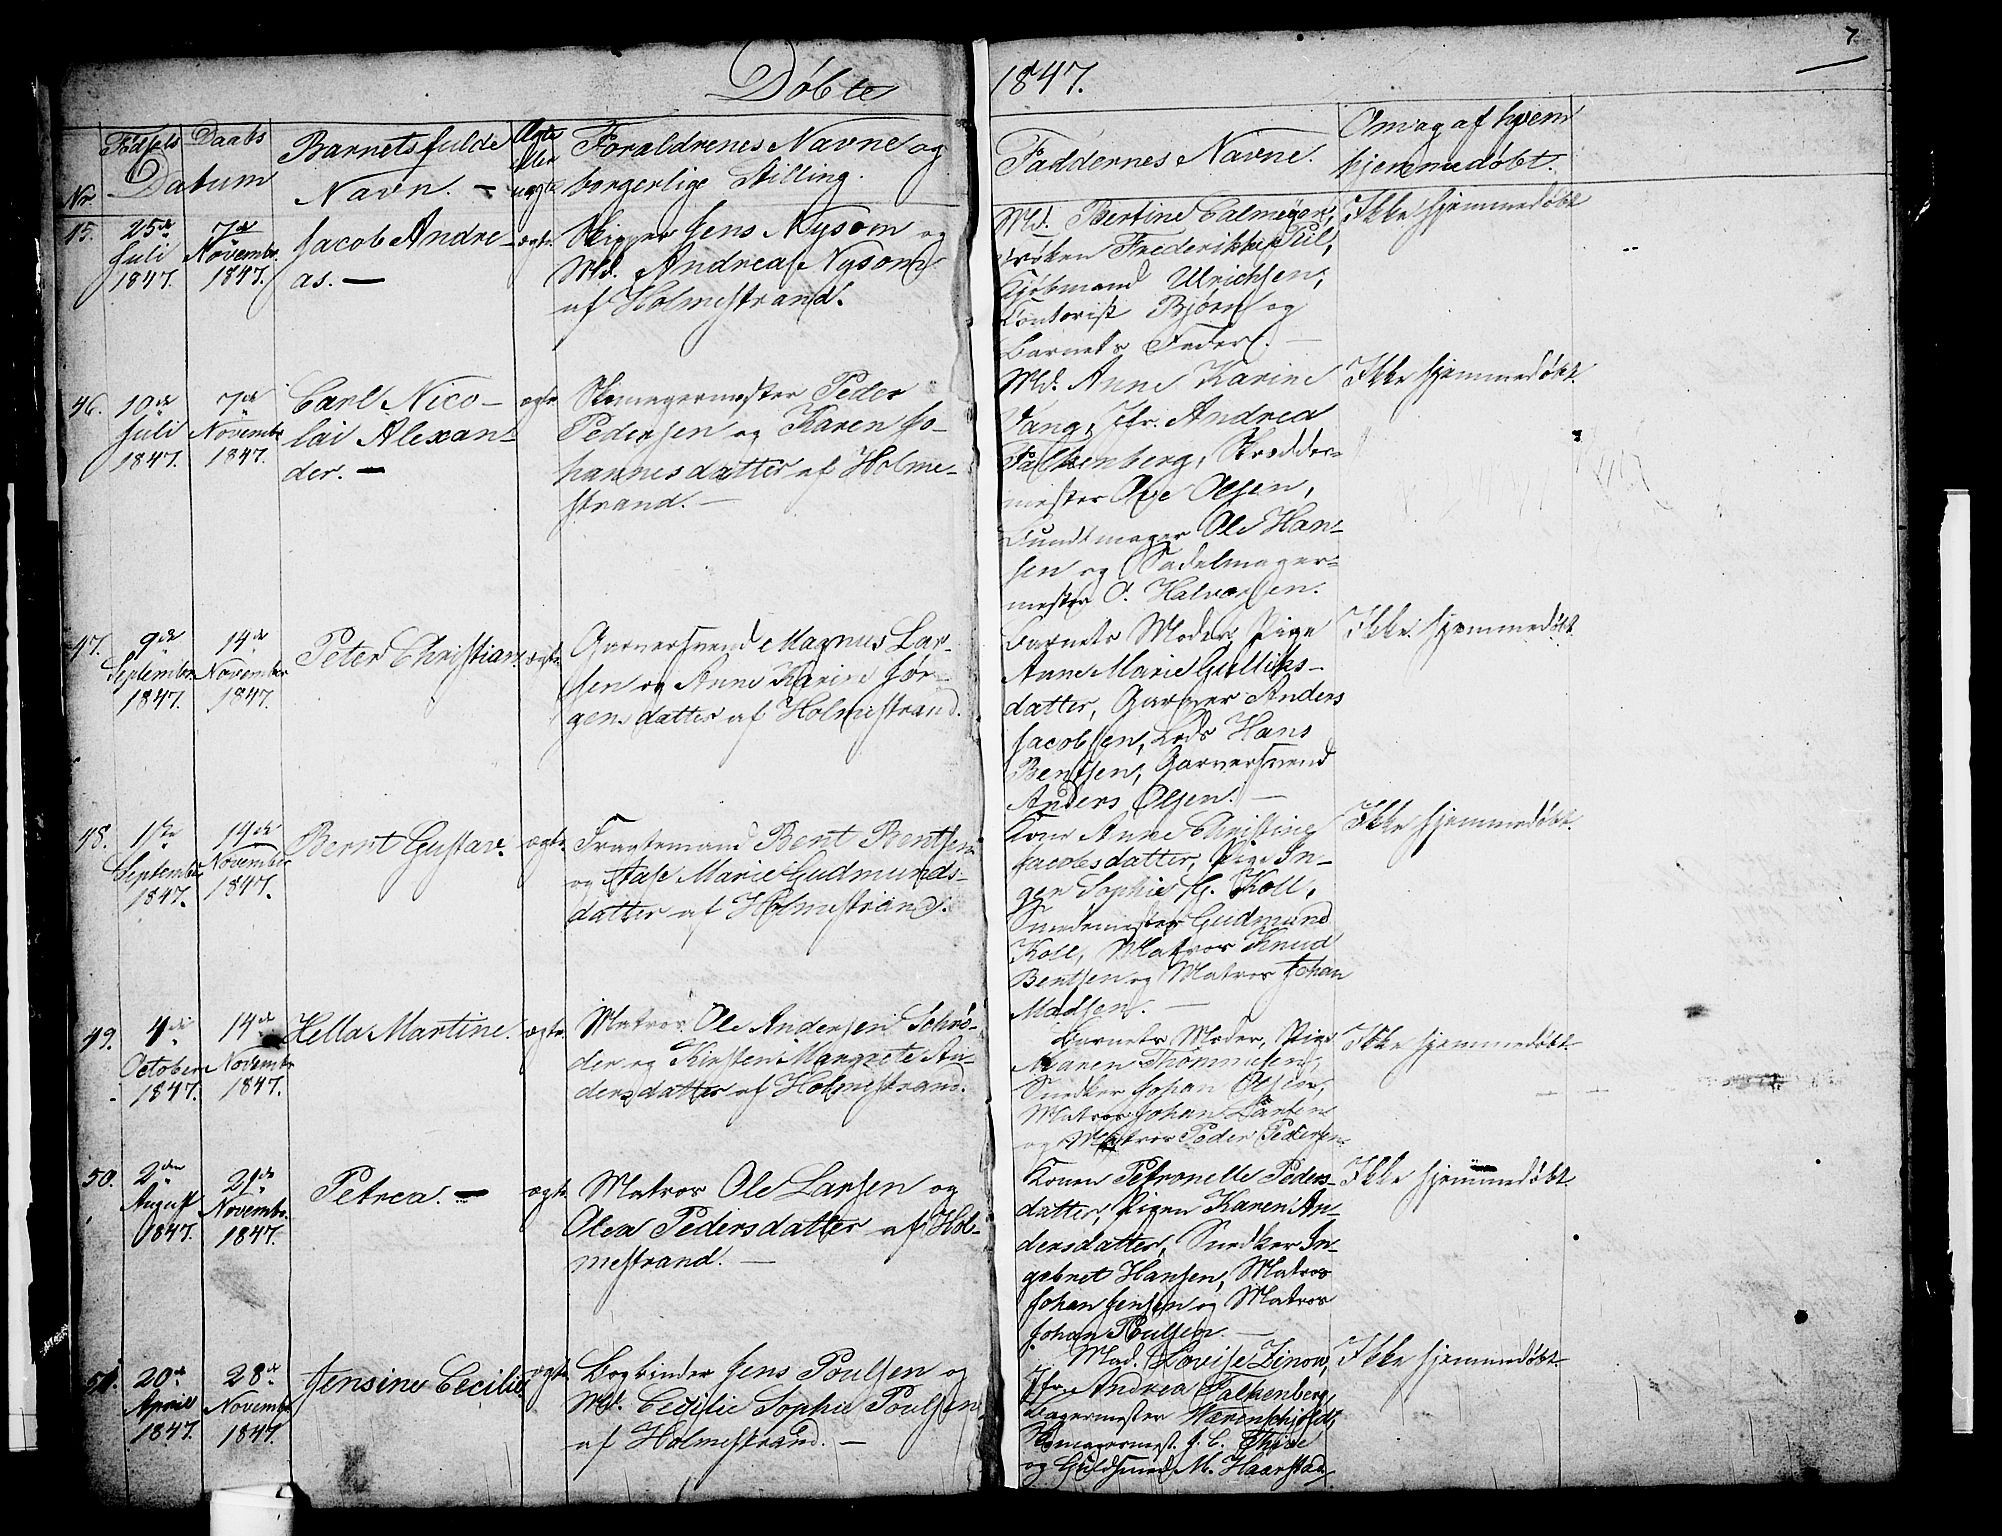 7
Døbte 1847.
Nr
Fødsels Daabs
Datum
Barnets fulde
Navn. —
Ægte
eller
uægte
Forældrenes Navne og
borgerlige Stilling.
Faddernes Navne.
Om og af hvem
hjemmedøbt.
45.
25de
Juli
1847.
7de
Novembr.
1847.
Jacob Andre-
as. —
ægte.
Skipper Jens Nysom og
Md. Andrea Nysom
af Holmestrand.
Md. Bertine Calmeyer,
Frøken Frederikke Piil,
Kjøbmand Ulrichsen,
Contorist Bjørn og
Barnets Fader. —
Ikke hjemmedøbt
46.
10de
Juli
1847.
7de
Novembr
1847.
Carl Nico-
lai Alexan-
der. —
ægte
Skomagermester Peder
Pedersen og Karen Jo-
hannesdatter af Holme-
strand. —
Md. Anne Karine
Vang, Jfr. Andrea
Falkenberg, Skrædder-
mester Ove Olsen,
Bundtmager Ole Han-
sen og Sadelmager-
mester O. Halvorsen.
Ikke hjemmedøbt.
47.
9de
September
1847.
14de
November
1847.
Peter Christian.
ægte.
Garversvend Magnus Lar-
sen og Anne Karine Jør-
gensdatter af Holmestrand.
Barnets Moder, Pige
Anne Marie Gulliks-
datter, Garver Anders
Jacobsen, Lods Hans
Bentsen, Garversvend
Anders Olsen. —
Ikke hjemmedøbt
48.
1ste
September
1847.
14de
November
1847.
Bernt Gustav.
ægte.
Fragtemand Bent Bentsen
og Aase Marie Gudmunds-
datter af Holmestrand.
Kone Anne Christine
Jacobsdatter, Pige In-
ger Sophie G. Koll,
Smedemester Gudmund
Koll, Matros Knud
Bentsen og Matros Johan
Madsen. —
Ikke hjemmedøbt.
49.
4de
October
1847.
14de
Novembr
1847.
Hella Martine.
ægte.
Matros Ole Andersen Schrø-
der og Kirsten Margrete An-
dersdatter af Holmestrand.
Barnets Moder, Pige
Maren Thommesen,
Snedker Johan Olsen,
Matros Johan Larsen
og Matros Peder Pedersen.
Ikke hjemmedøbt
50.
2den
August
1847.
21de
Novembr.
1847.
Petrea. —
ægte.
Matros Ole Larsen og
Olea Pedersdatter af Hol-
mestrand. —
Konen Petronelle Peders-
datter, Pigen Karen An-
dersdatter, Snedker In-
gebret Hansen, Matros
Johan Jensen og Matros
Johan Poulsen. —
Ikke hjemmedøbt
51.
20de
April
1847.
28de
Novembr
1847.
Jensine Cecilie.
ægte.
Bogbinder Jens Poulsen og
Md. Cecilie Sophie Poulsen
af Holmestrand. —
Mad. Lovise Zinow,
Jfr. Andrea Falkenberg,
Bagermester Værenschjold,
Skomagermest. J. C.
og Guldsmed M. Haarstad.
Ikke hjemmedøbt